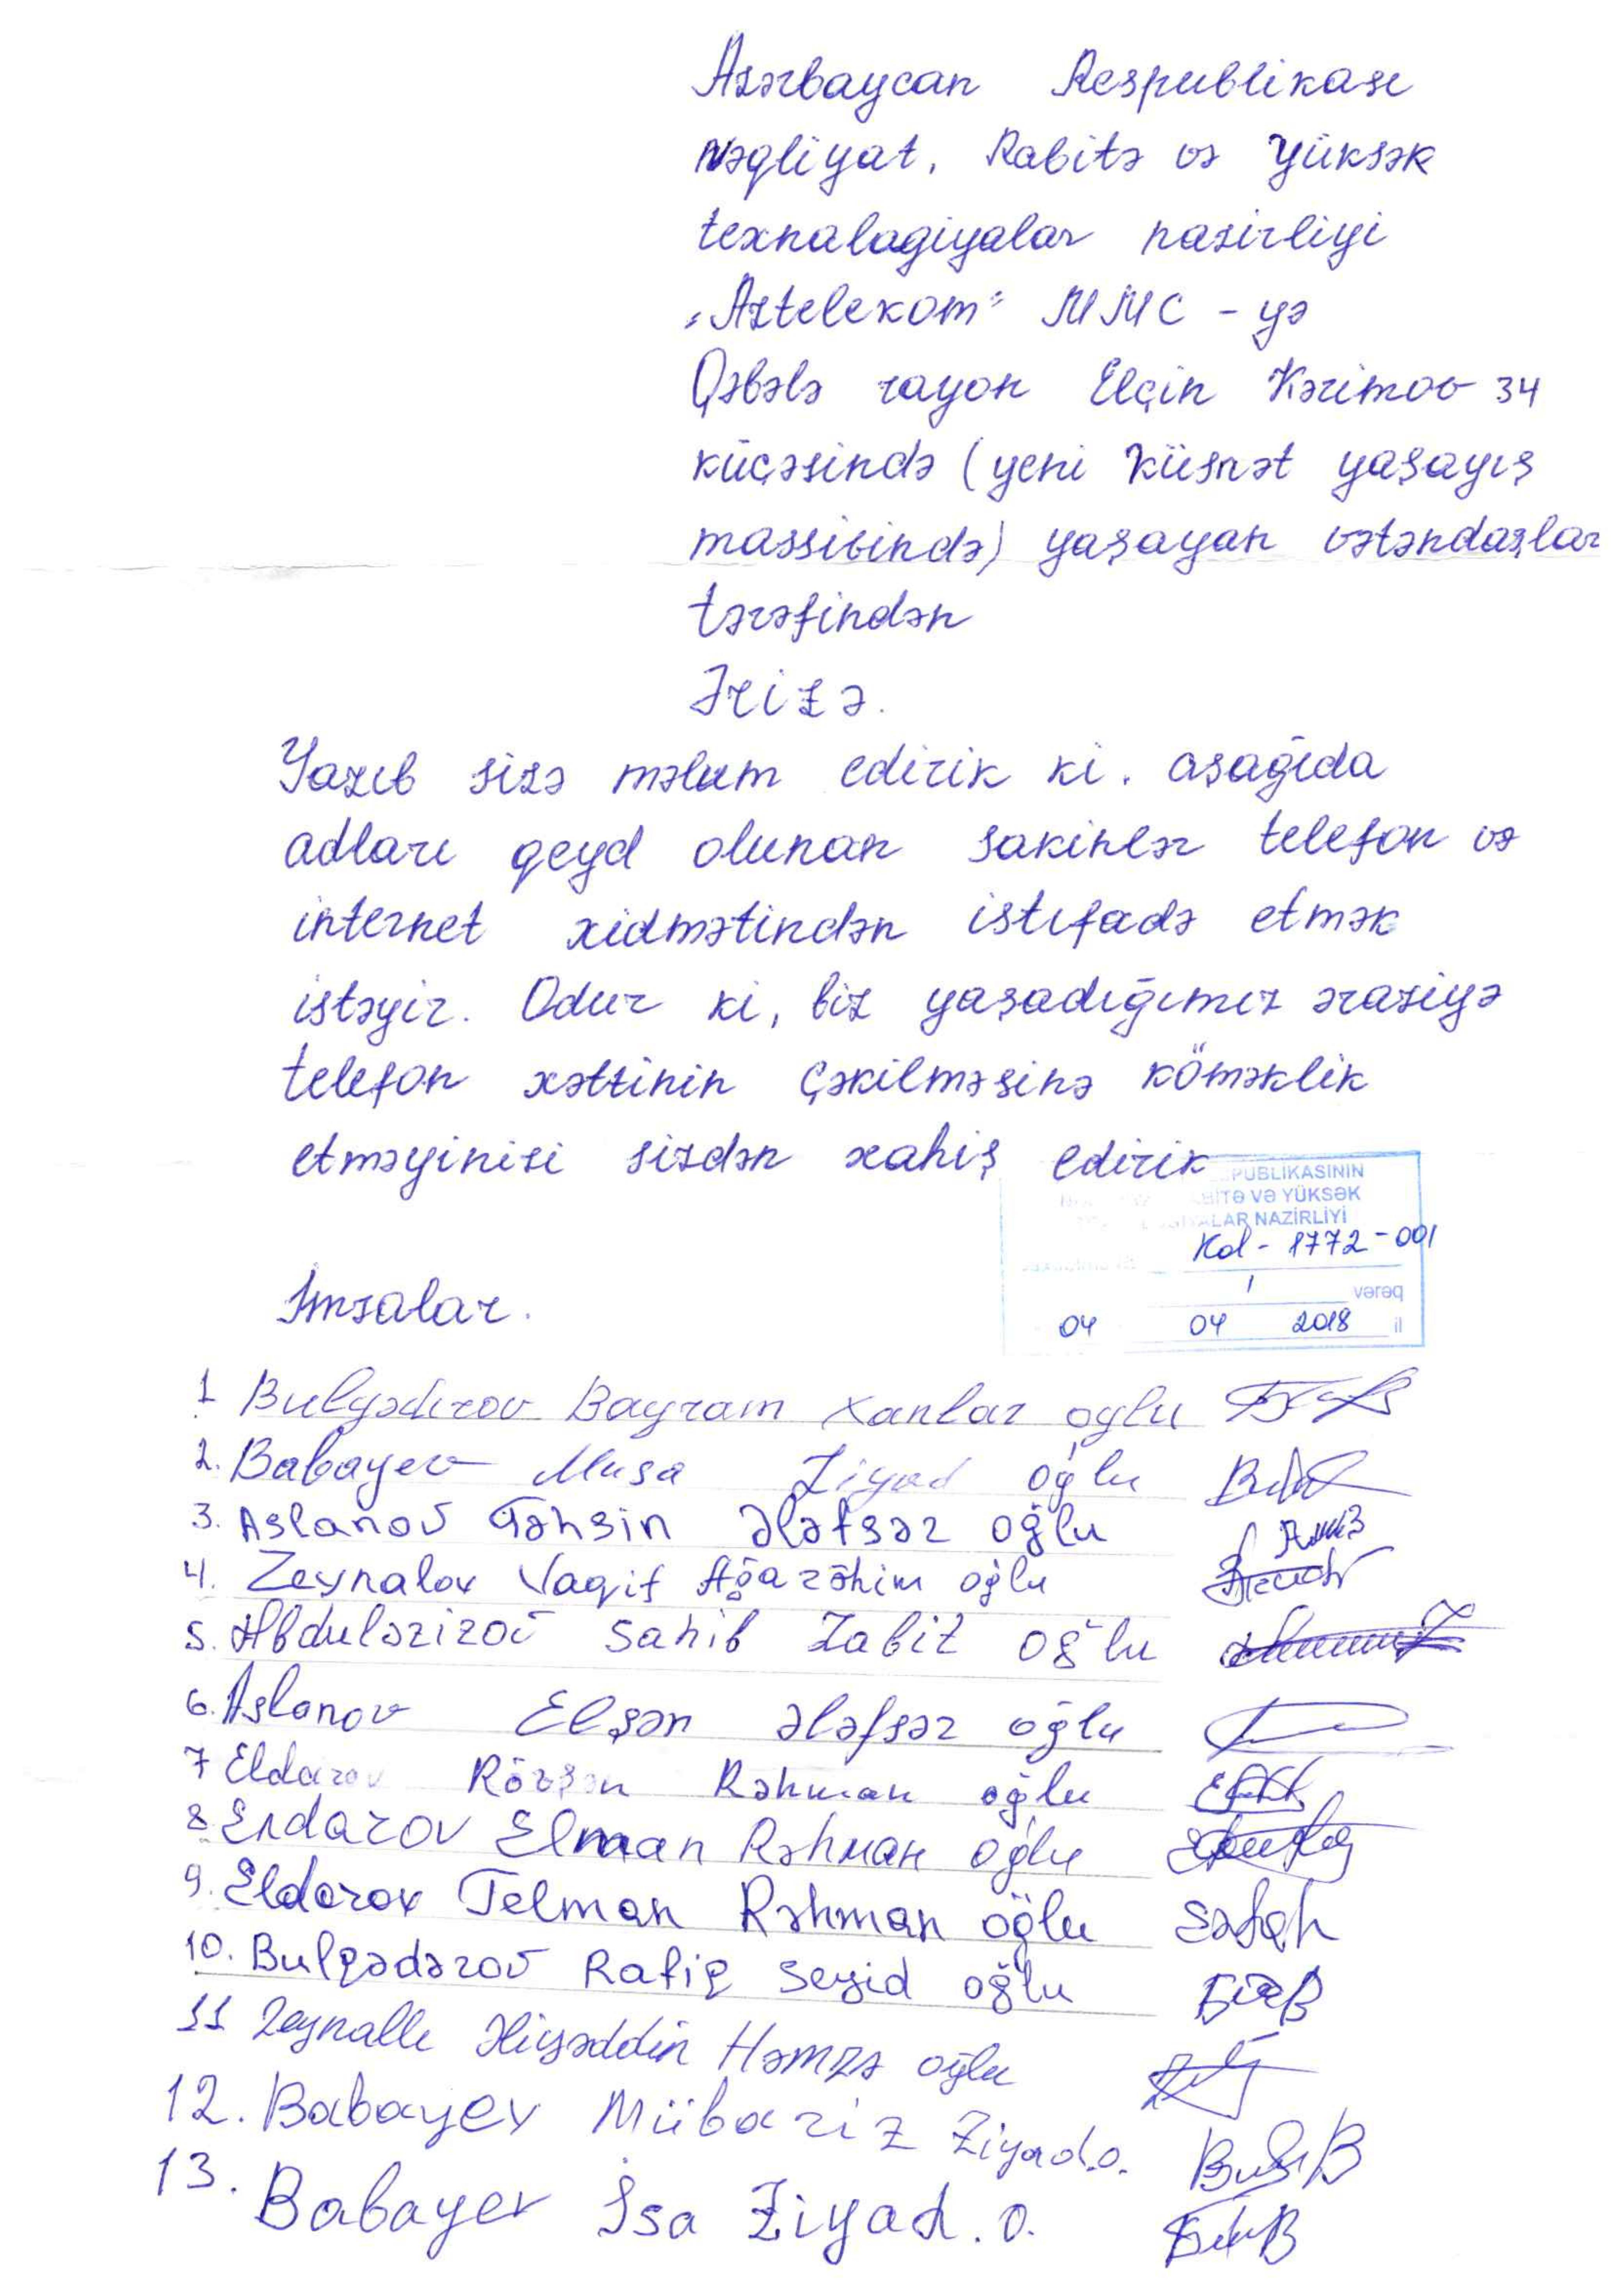 Azərbaycan Respublikası
Nəqliyat, Rabitə və Yüksək
texnalagiyalar nazirliyi
"Aztelekom" MMC - yə
Qəbələ rayon Elçin Kərimov 34
küçəsində (yeni Küsnət yaşayış
massivində) yaşayan vətəndaşlar
tərəfindən
Ərizə.
Yazıb sizə məlum edirik ki. aşağıda
adları qeyd olunan sakinlər telefon və
internet xidmətindən istifadə etmək
istəyir. Odur ki, biz yaşadığımız əraziyə
telefon xəttinin çəkilməsinə köməklik
etməyinizi sizdən xahiş edirik
PUBLİKASININ
BİTƏ VƏ YÜKSƏK
LAR NAZİRLİYİ
Kol - 1772 - 001
1 vərəq
04 04 2018 il
İmzalar.
1 Bulqədırov Bayram Xanlar oglu
2. Babayev Musa Ziyad oğlu
3. Aslanov Təhsin Ələfsər oğlu
4. Zeynalov Vaqif Ağarəhim oğlu
5. Abduləzizov Sahib Zabit oğlu
6. Aslanov Elşən Ələfsər oğlu
7 Eldarov Rövşən Rəhman oğlu
8. Eldarov Elman Rəhman oğlu
9. Eldarov Telman Rəhman oğlu
10. Bulqədərov Rafiq Seyid oğlu
11 Zeynallı Əliyəddin Həmzə oğlu
12. Babayev Mübariz Ziyad.o.
13. Babayev İsa Ziyad. o.